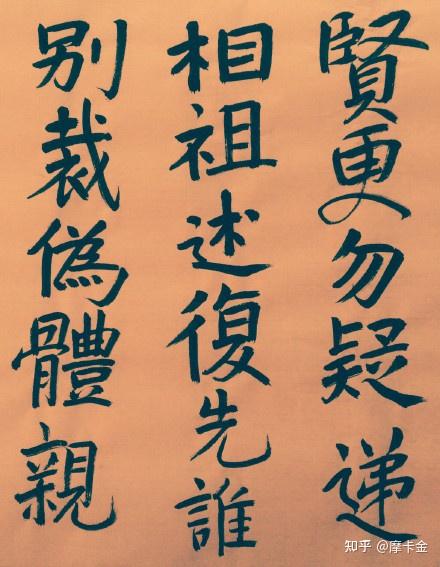 賢更勿疑遞
相祖述復先誰
別裁偽體親
知乎 @摩卡金